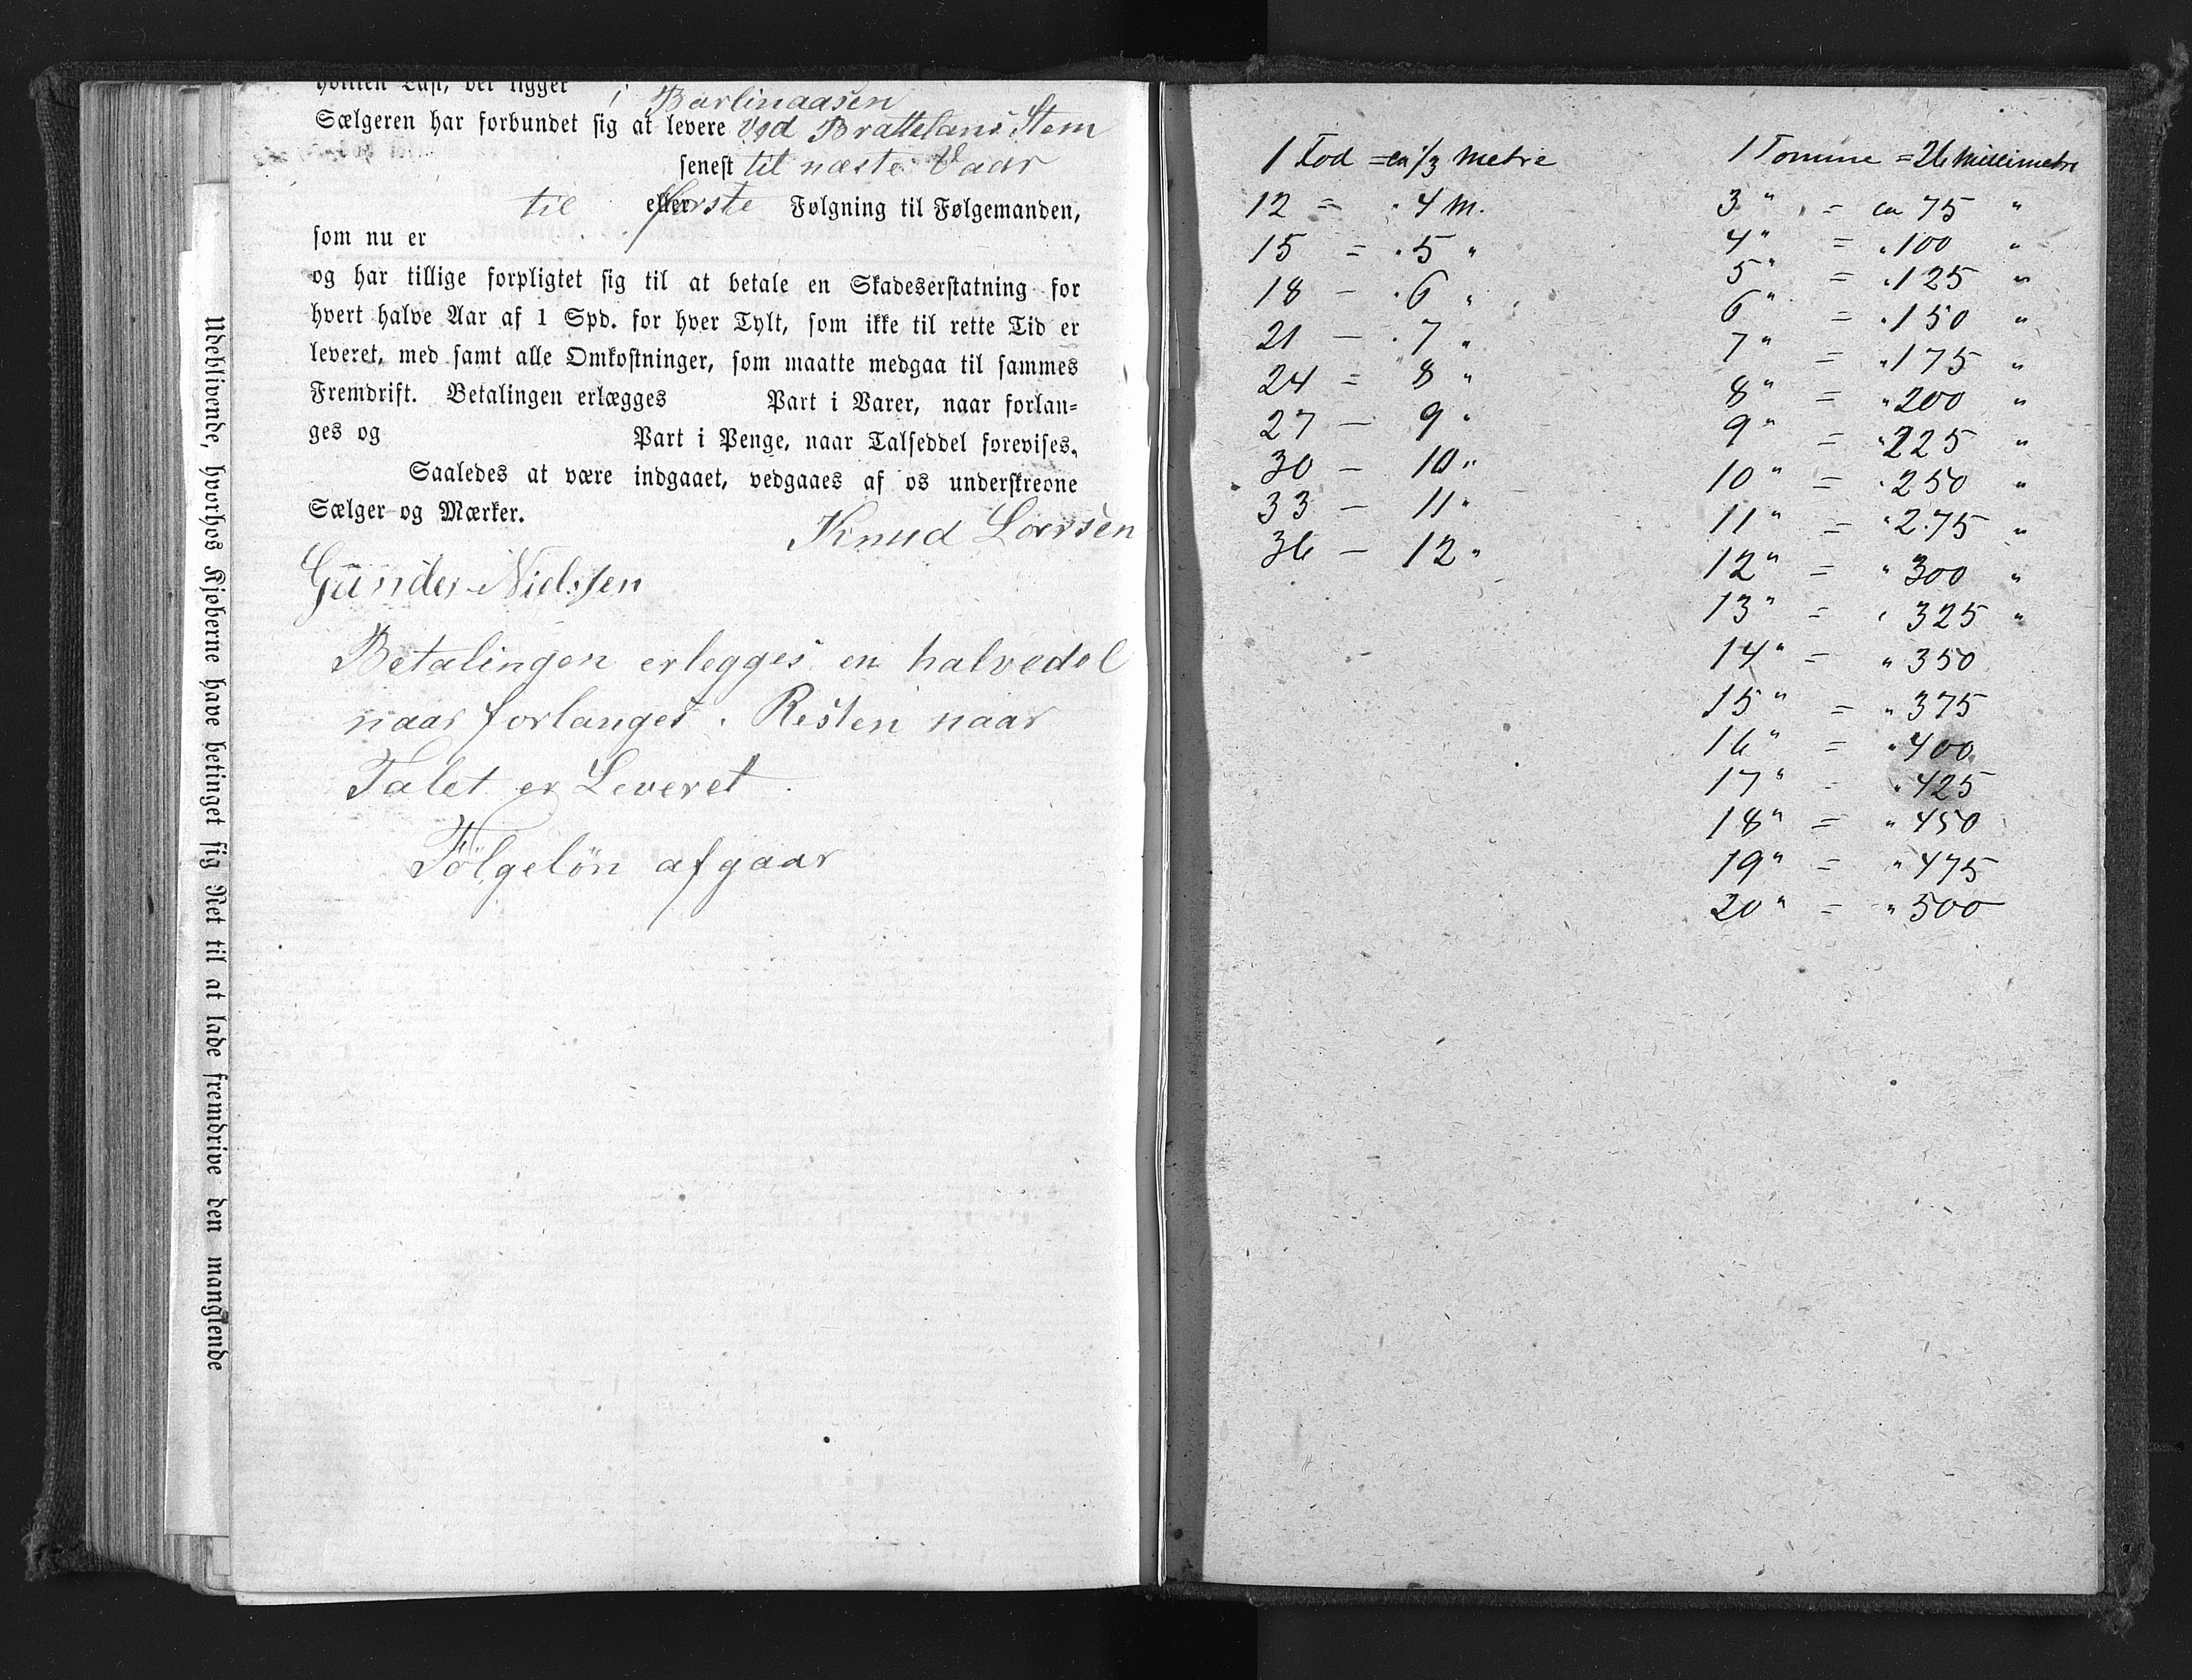 hvilken Last, der ligger i Barlinaasen
Sælgeren har forbundet sig at levere ved Brattelans Stem
senest til næste Vaar
til eller første Følgning til Følgemanden,
som nu er
og har tillige forpligtet sig til at betale en Skadeserstatning for
hvert halve Aar af 1 Spd. for hver Tylt, som ikke til rette Tid er
leveret, med samt alle Omkostninger, som maatte medgaa til sammes
Fremdrift. Betalingen erlægges Part i Varer, naar forlan-
ges og Part i Penge, naar Talseddel forevises.
Saaledes at være indgaaet, vedgaaes af os underskrevne
Sælger og Mærker.
Knud Larsen
Gunder Nielsen
Betalingen erlegges en halvedel
naar forlanges. Resten naar
Talet er Leveret.
Følgeløn afgaar
Udeblivende, hvorhos Kjøberne have betinget sig Ret til at lade fremdrive den manglende
1 Fod = ca 1/3 Metre
12 = . 4 M.
15 = . 5 "
18 — . 6 "
21 — . 7 "
24 = 8 "
27 — 9 "
30 — 10 "
33 — 11 "
36 — 12 "
1 Tomme = 26 Millimetre
3 " = ca 75 "
4 " = " 100 "
5 " = " 125 "
6 " = " 150 "
7 " = " 175 "
8 " = " 200 "
9 " = " 225 "
10 " = " 250 "
11 " = " 275 "
12 " = " 300 "
13 " = " 325 "
14 " = " 350
15 " = " 375
16 " = " 400
17 " = " 425
18 " = " 450
19 " = " 475
20 " = " 500